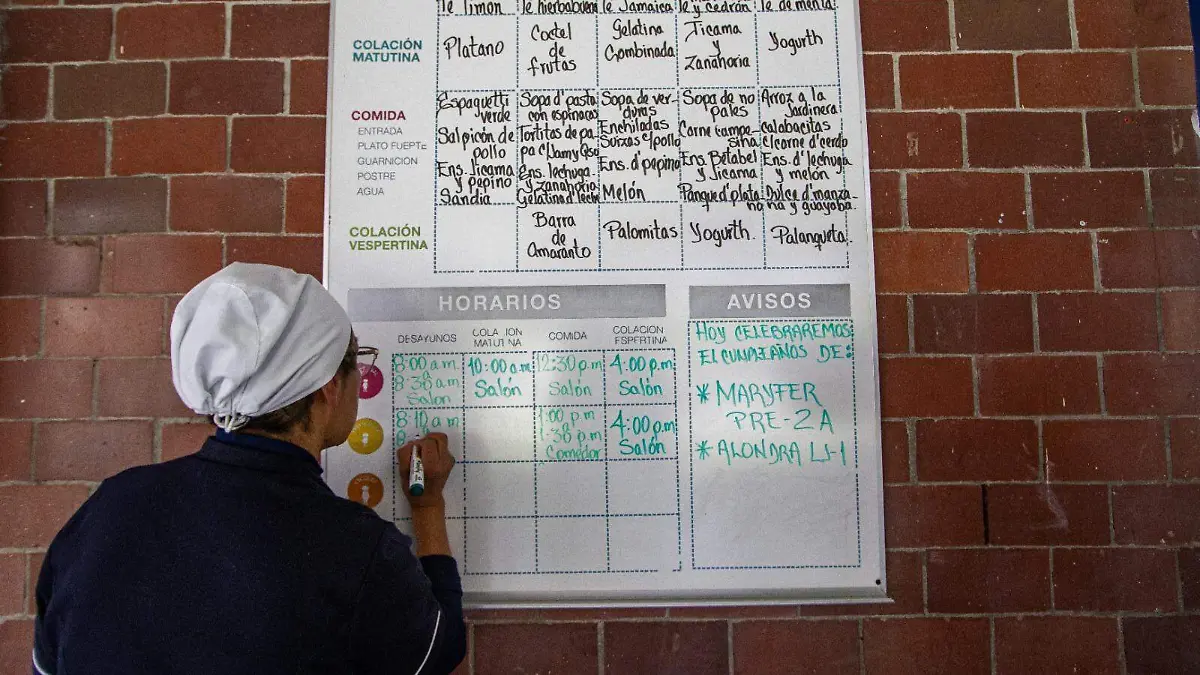 Te limón Te hierbabuena Te Jamaica Te y cedrón Te de menta
COLACIÓN
MATUTINA
Platano
Coctel
de
frutas
Gelatina
Combinada
Jicama
y
Zanahoria
Yogurth
COMIDA
ENTRADA
PLATO FUERTE
GUARNICIÓN
POSTRE
AGUA
Espaguetti
verde
Salpicón de
pollo
Ens. Jicama
y pepino
Sandia
Sopa d' pasta
con espinacas
Tortitas de pa-
pa c/Jam y Qso
Ens. lechuga
y zanahoria
Gelatina d' leche
Sopa de ver-
duras
Enchiladas
Suizas c/pollo
Ens. d' pepino
Melón
Sopa de no
pales
Carne campe-
sina
Ens. Betabel
y Jicama
Panque d' plata-
no
Arroz a la
Jardinera
calabacitas
c/carne d' cerdo
Ens. d' lechuga
y melón
Dulce d' manza-
na y guayaba
COLACIÓN
VESPERTINA
Barra
de
Amaranto
Palomitas
Yogurth.
Palanqueta.
HORARIOS
DESAYUNOS
COLA ION
MATUTINA
COMIDA
COLACION
ESPERTINA
8:00 a.m.
8:30 am
Salón
10:00 a.m
Salón
12:30 p.m
Salón
4:00 p.m.
Salón
8:10 a m
1:00 p.m
1:30 p.m
Comedor
4:00 p.m
Salón
AVISOS
HOY CELEBRAREMOS
EL CUMPLEAÑOS DE:
* MARYFER
PRE-2A
* ALONDRA LS-1